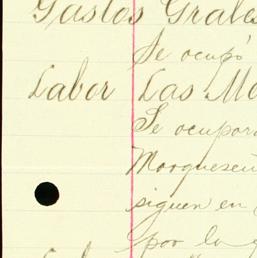 Gastos Grales
Se ocupó
Labor Las Mo
Se ocupar
Marqueseñ
siguen en
por la